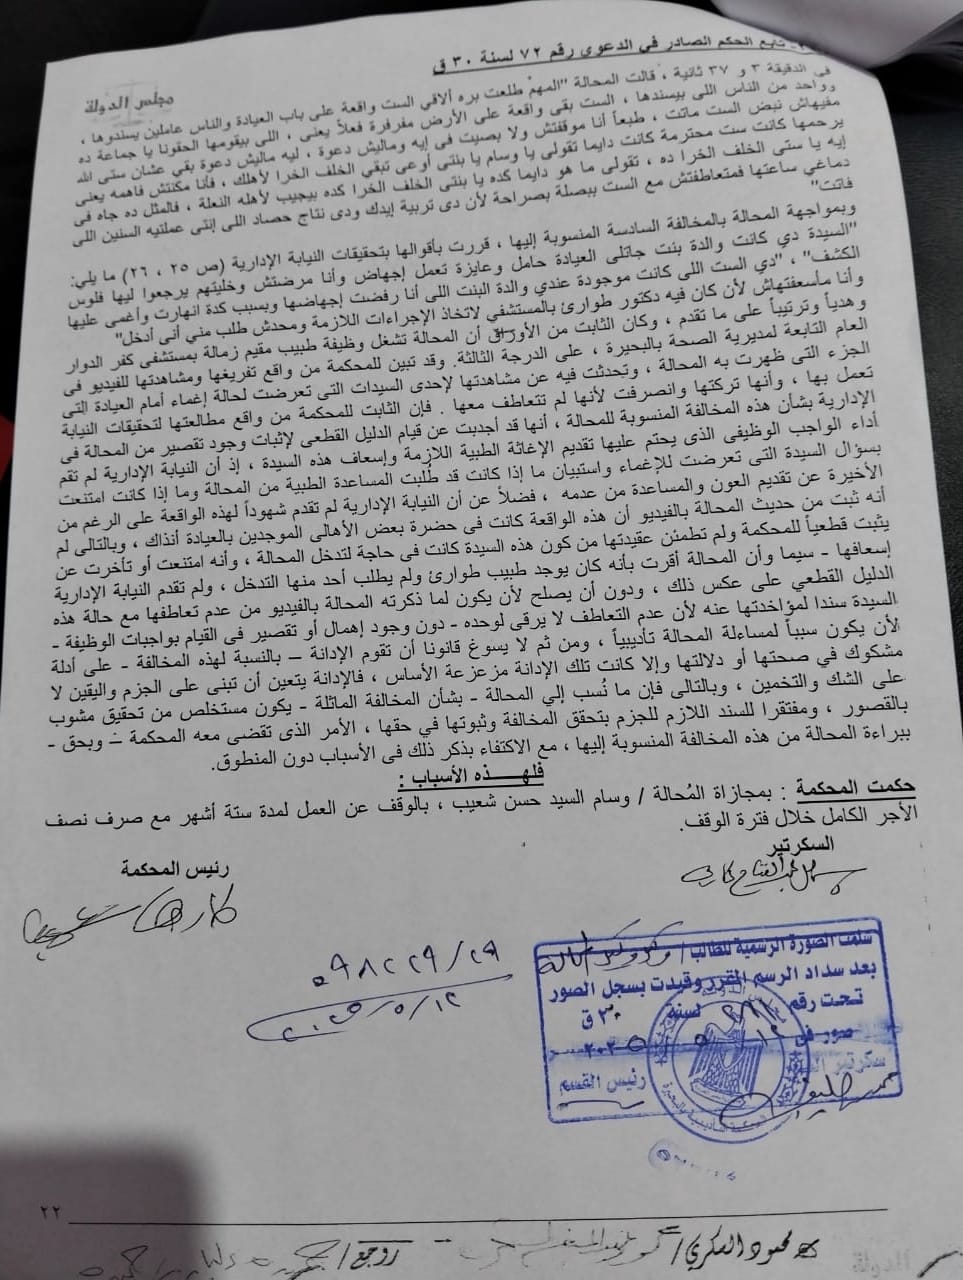 تابع الحكم الصادر في الدعوى رقم ٧٢ لسنة ٣٠ ق
مجلس الدولة
في الدقيقة ٣ و ٣٧ ثانية ، قالت المحالة "المهم طلعت بره ألاقي الست واقعة على باب العيادة والناس عاملين يسندوها ،
وواحد من الناس اللى بيسندها ، الست بقى واقعة على الأرض مفرفرة فعلاً يعنى ، اللى بيقومها الحقونا يا جماعة ده
مفيهاش نبض الست ماتت ، طبعاً أنا موقفتش ولا بصيت في إيه وماليش دعوة ، ليه ماليش دعوة بقى عشان ستى الله
يرحمها كانت ست محترمة كانت دايما تقولى يا وسام يا بنتى أوعى تبقي الخلف الخرا لأهلك ،
إيه يا ستى الخلف الخرا ده ، تقولى ما هو دايما كده يا بنتى الخلف الخرا كده بيجيب لأهله النعلة ، فالمثل ده جاه فى
دماغي ساعتها فمتعاطفتش مع الست ببصلة بصراحة لأن دى تربية إيدك ودى نتاج حصاد اللى إنتى عملتيه السنين اللى
فاتت"
وبمواجهة المحالة بالمخالفة السادسة المنسوبة إليها ، قررت بأقوالها بتحقيقات النيابة الإدارية (ص ٢٥ ، ٢٦) ما يلي:
"السيدة دي كانت والدة بنت جاتلى العيادة حامل وعايزة تعمل إجهاض وأنا مرضتش وخليتهم يرجعوا ليها فلوس
الكشف" ، "دي الست اللى كانت موجودة عندي والدة البنت اللى أنا رفضت إجهاضها وبسبب كدة انهارت وأغمى عليها
وأنا مأسعفتهاش لأن كان فيه دكتور طوارئ بالمستشفي لاتخاذ الإجراءات اللازمة ومحدش طلب مني أنى أدخل"
وهدياً وترتيباً على ما تقدم ، وكان الثابت من الأوراق أن المحالة تشغل وظيفة طبيب مقيم زمالة بمستشفى كفر الدوار
العام التابعة لمديرية الصحة بالبحيرة ، على الدرجة الثالثة. وقد تبين للمحكمة من واقع تفريغها ومشاهدتها للفيديو فى
الجزء التى ظهرت به المحالة ، وتحدثت فيه عن مشاهدتها لإحدى السيدات التى تعرضت لحالة إغماء أمام العيادة التى
تعمل بها ، وأنها تركتها وانصرفت لأنها لم تتعاطف معها . فإن الثابت للمحكمة من واقع مطالعتها لتحقيقات النيابة
الإدارية بشأن هذه المخالفة المنسوبة للمحالة ، أنها قد أجدبت عن قيام الدليل القطعى لإثبات وجود تقصير من المحالة فى
أداء الواجب الوظيفى الذى يحتم عليها تقديم الإغاثة الطبية اللازمة وإسعاف هذه السيدة ، إذ أن النيابة الإدارية لم تقم
بسؤال السيدة التى تعرضت للإغماء واستبيان ما إذا كانت قد طلبت المساعدة الطبية من المحالة وما إذا كانت امتنعت
الأخيرة عن تقديم العون والمساعدة من عدمه ، فضلاً عن أن النيابة الإدارية لم تقدم شهوداً لهذه الواقعة على الرغم من
أنه ثبت من حديث المحالة بالفيديو أن هذه الواقعة كانت فى حضرة بعض الأهالى الموجدين بالعيادة أنذاك ، وبالتالى لم
يثبت قطعياً للمحكمة ولم تطمئن عقيدتها من كون هذه السيدة كانت فى حاجة لتدخل المحالة ، وأنه امتنعت أو تأخرت عن
إسعافها - سيما وأن المحالة أقرت بأنه كان يوجد طبيب طوارئ ولم يطلب أحد منها التدخل ، ولم تقدم النيابة الإدارية
الدليل القطعي على عكس ذلك ، ودون أن يصلح لأن يكون لما ذكرته المحالة بالفيديو من عدم تعاطفها مع حالة هذه
السيدة سندا لمؤاخذتها عنه لأن عدم التعاطف لا يرقى لوحده - دون وجود إهمال أو تقصير فى القيام بواجبات الوظيفة -
لأن يكون سبباً لمساءلة المحالة تأديبياً ، ومن ثم لا يسوغ قانونا أن تقوم الإدانة – بالنسبة لهذه المخالفة - على أدلة
مشكوك في صحتها أو دلالتها وإلا كانت تلك الإدانة مزعزعة الأساس ، فالإدانة يتعين أن تبنى على الجزم واليقين لا
على الشك والتخمين ، وبالتالى فإن ما نُسب إلي المحالة - بشأن المخالفة الماثلة - يكون مستخلص من تحقيق مشوب
بالقصور ، ومفتقرا للسند اللازم للجزم بتحقق المخالفة وثبوتها في حقها ، الأمر الذى تقضى معه المحكمة – وبحق -
ببراءة المحالة من هذه المخالفة المنسوبة إليها ، مع الاكتفاء بذكر ذلك فى الأسباب دون المنطوق.
فلهـــذه الأسباب :
حكمت المحكمة : بمجازاة المُحالة / وسام السيد حسن شعيب ، بالوقف عن العمل لمدة ستة أشهر مع صرف نصف
الأجر الكامل خلال فترة الوقف.
السكرتير
رئيس المحكمة
سلمت الصورة الرسمية للطالب /
بعد سداد الرسم المقرر وقيدت بسجل الصور
تحت رقم لسنة ٣٠ ق
صور فى
سكرتير
رئيس القسم
٢٢
محمود السكري /
روجع /